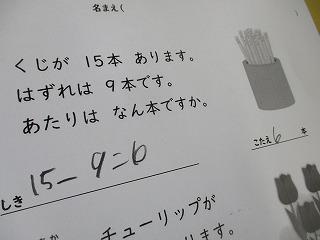 名まえ(
くじが 15本 あります。
はずれは 9本です。
あたりは なん本ですか。
しき 15-9=6
こたえ 6 本
チューリップが
ります。